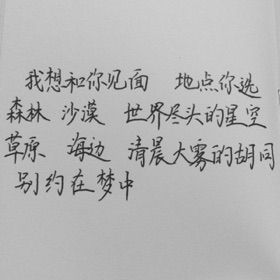 我想和你见面 地点你选
森林 沙漠 世界尽头的星空
草原 海边 清晨大雾的胡同
别约在梦中